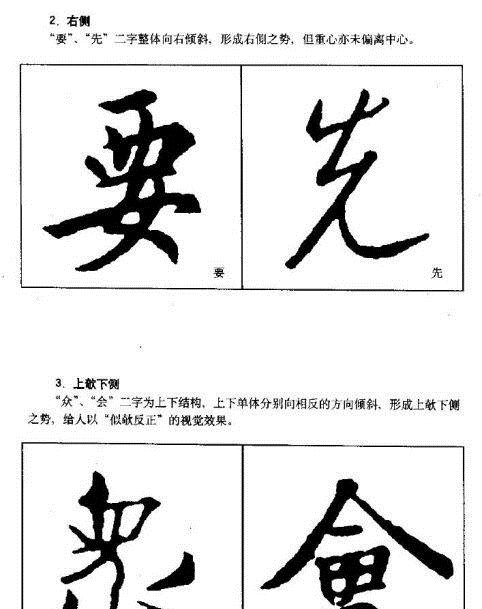 2．右侧
“要”、“先”二字整体向右倾斜，形成右侧之势，但重心亦未偏离中心。
要 先
要
先
3．上欹下侧
“众”、“会”二字为上下结构，上下单体分别向相反的方向倾斜，形成上欹下侧
之势，给人以“似欹反正”的视觉效果。
眾 會